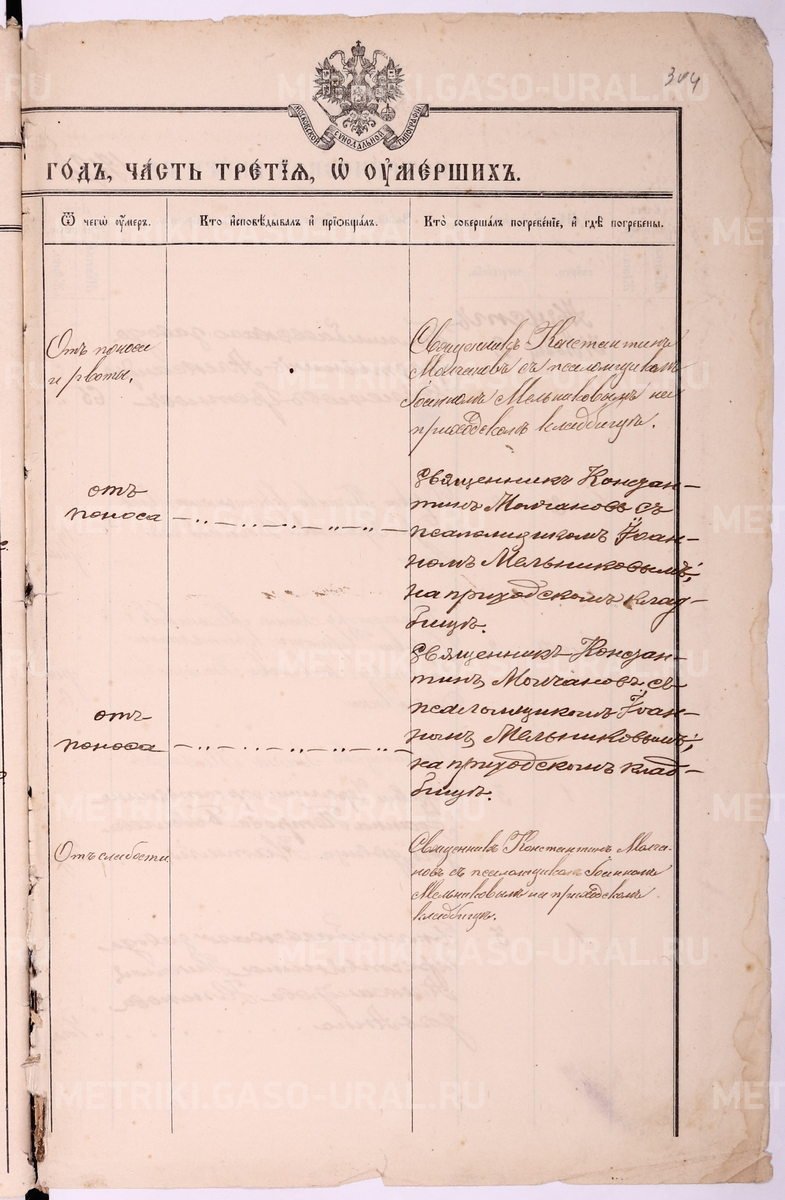 304
МОСКОВСКОЙ СѴНОДАЛЬНОЙ ТИПОГРАФІИ
ГО́ДЪ, ЧА́СТЬ ТРЕ́ТЇѦ, Ѡ ОУ҆МЕ́РШИХЪ.
Ѿ чегѡ̀ ᲂу҆́меръ.
Кто̀ и҆сповѣ́дывалъ и҆ прїѡбща́лъ.
Кто̀ соверша́лъ погребе́нїе, и҆ гдѣ̀ погребены.
Отъ поноса
и рвоты.
Священникъ Константинъ
Молчановъ съ псаломщикомъ
Іоанномъ Мельниковымъ на
приходскомъ кладбищѣ.
отъ
поноса — „ — „ — „ — „ —
Священникъ Констан-
тинъ Молчановъ съ
псаломщикомъ Іоан-
номъ Мельниковымъ,
на приходскомъ клад-
бищѣ.
отъ
поноса — „ — „ — „ — „ —
Священникъ Констан-
тинъ Молчановъ съ
псаломщикомъ Іоан-
номъ Мельниковымъ,
на приходскомъ клад-
бищѣ.
Отъ слабости
Священникъ Константинъ Молча-
новъ съ псаломщикомъ Іоанномъ
Мельниковымъ на приходскомъ
кладбищѣ.
METRIKI.GASO-URAL.RU